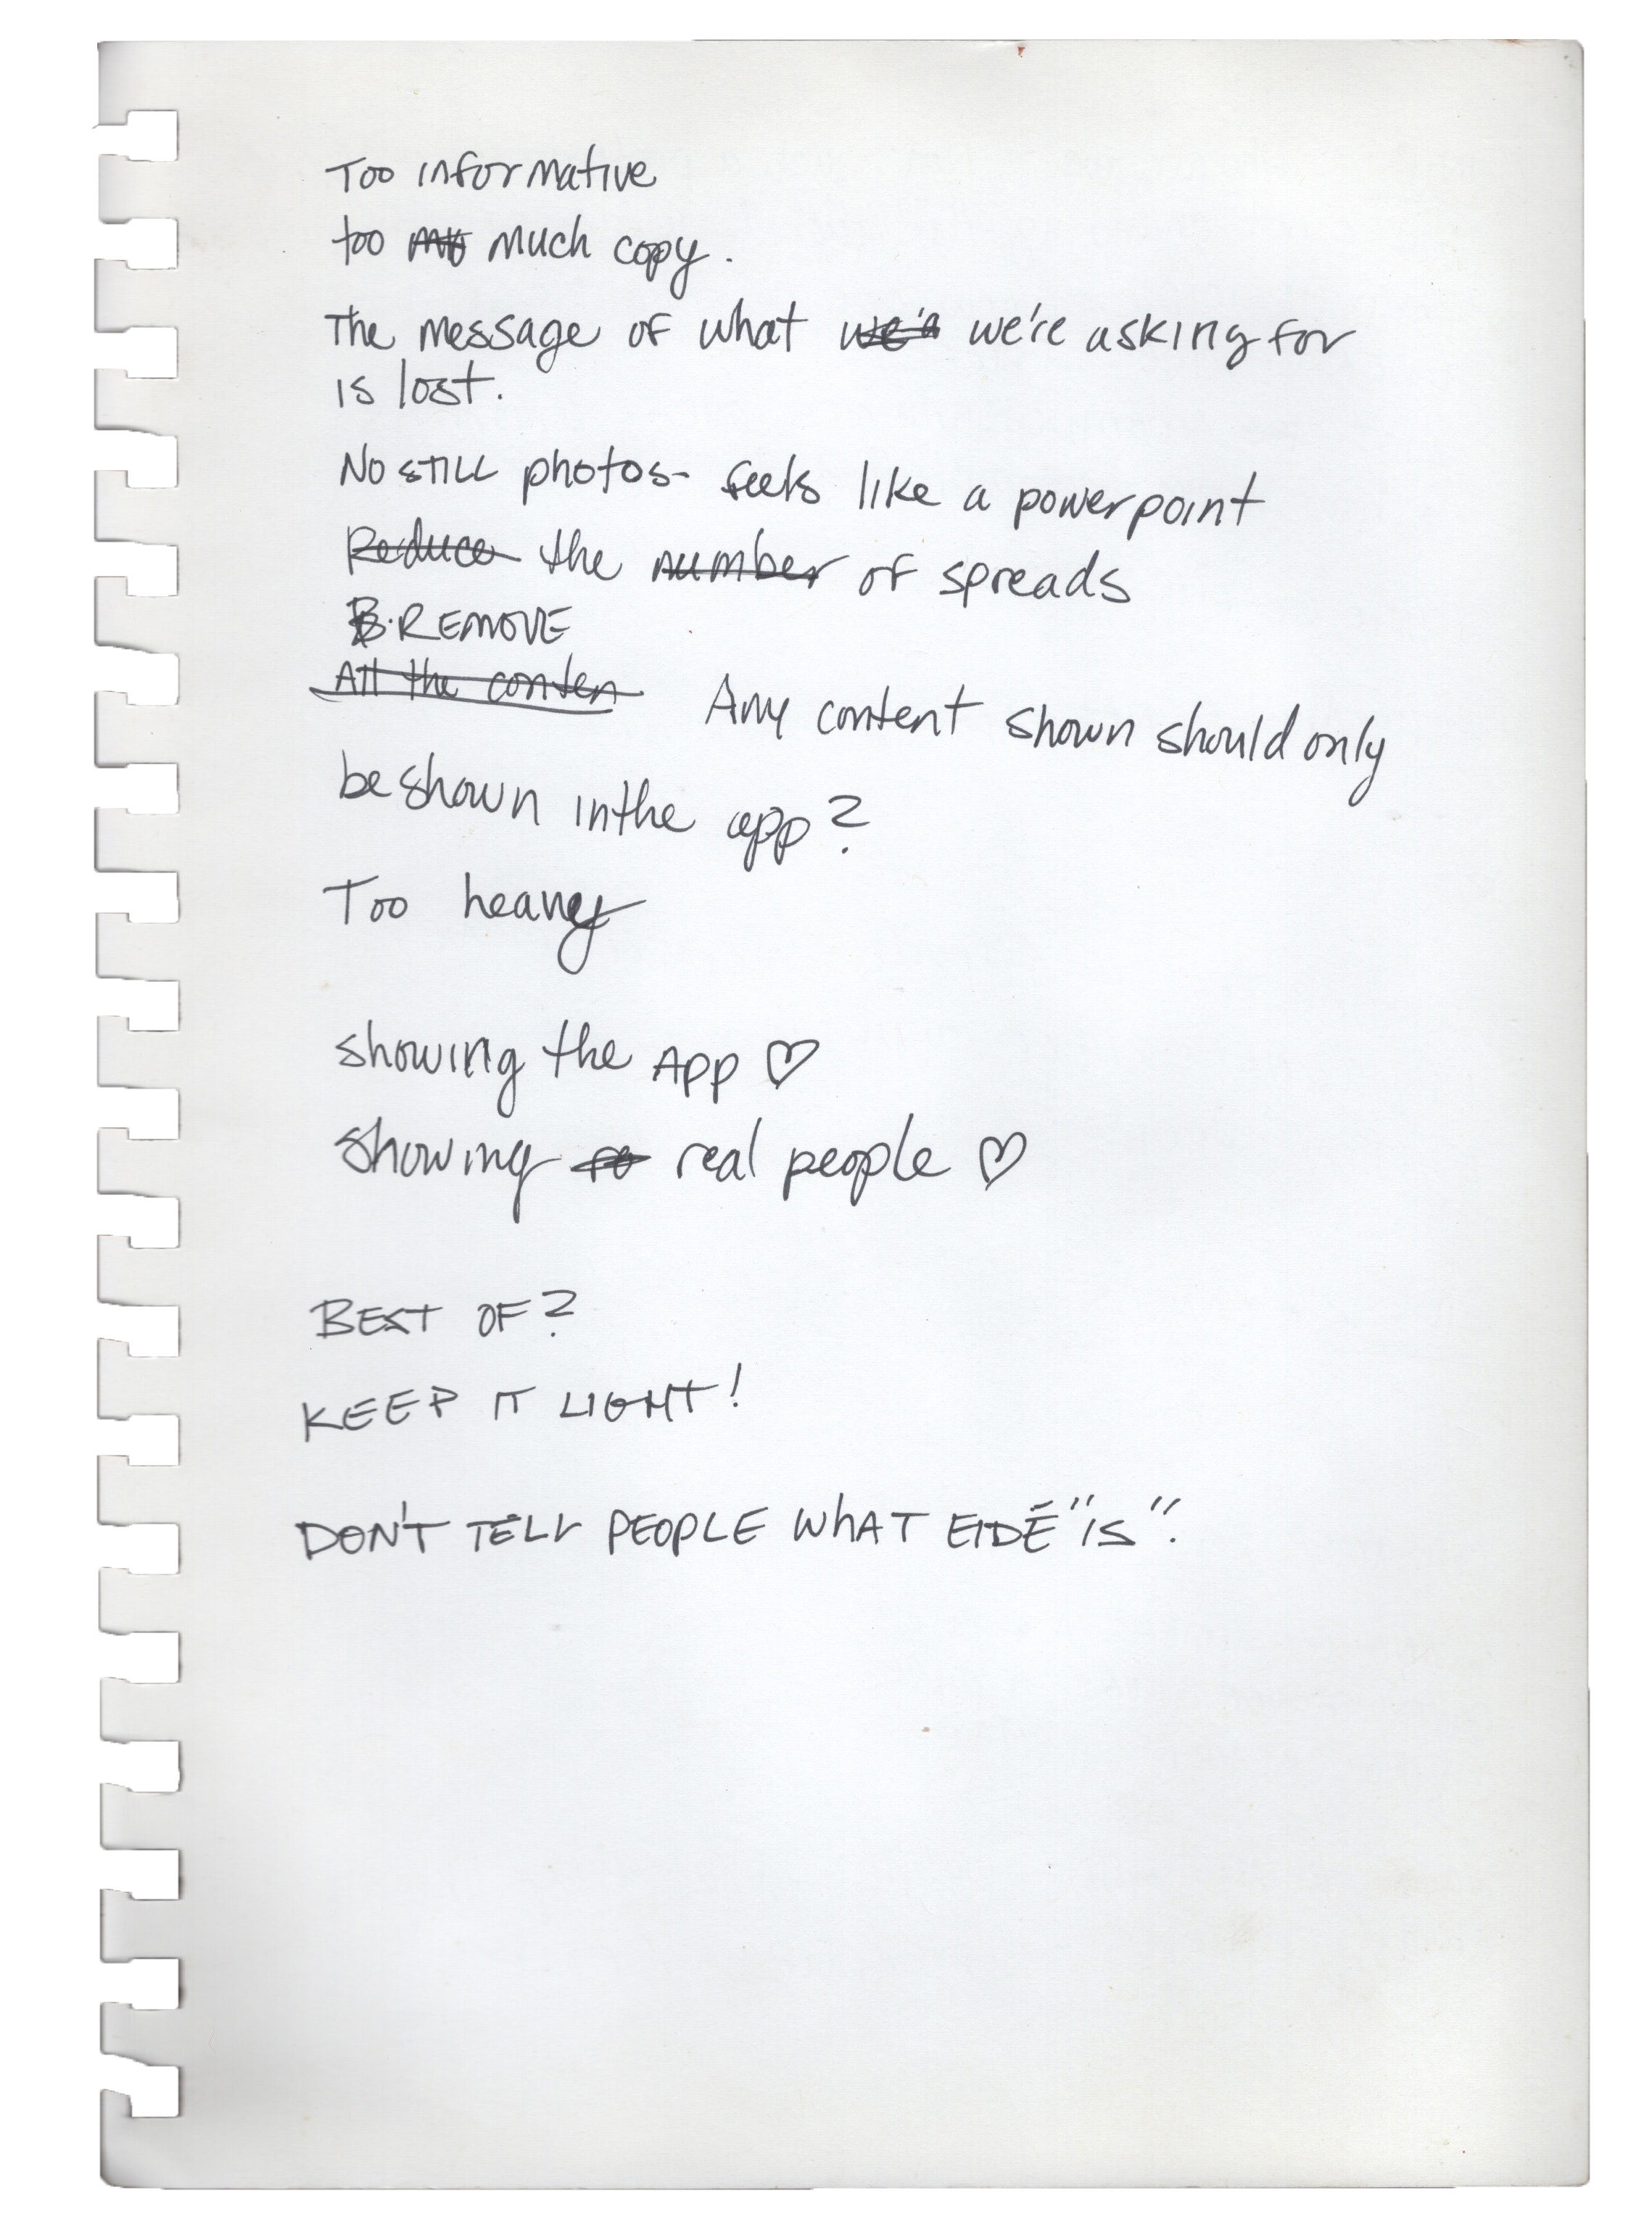 Too informative
too much copy.
The message of what we're asking for
is lost.
No STILL photos- feels like a powerpoint
Reduce the number of spreads
B. REMOVE
All the conten Any content shown should only
be shown in the app?
Too heavy
showing the App ♡
showing real people ♡
BEST OF?
KEEP IT LIGHT!
DON'T TELL PEOPLE WHAT EIDÉ "IS".